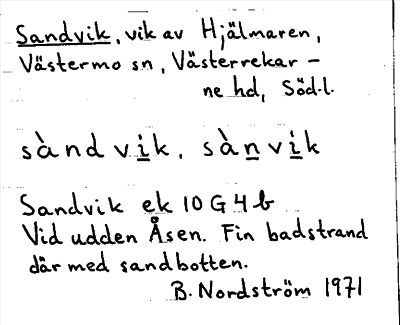 Sandvik, vik av Hjälmaren,
Västermo sn, Västerrekar-
ne hd, Söd-l.
sàndvik, sànvik
Sandvik ek 10 G 4 b
Vid udden Åsen. Fin badstrand
där med sandbotten.
B. Nordström 1971